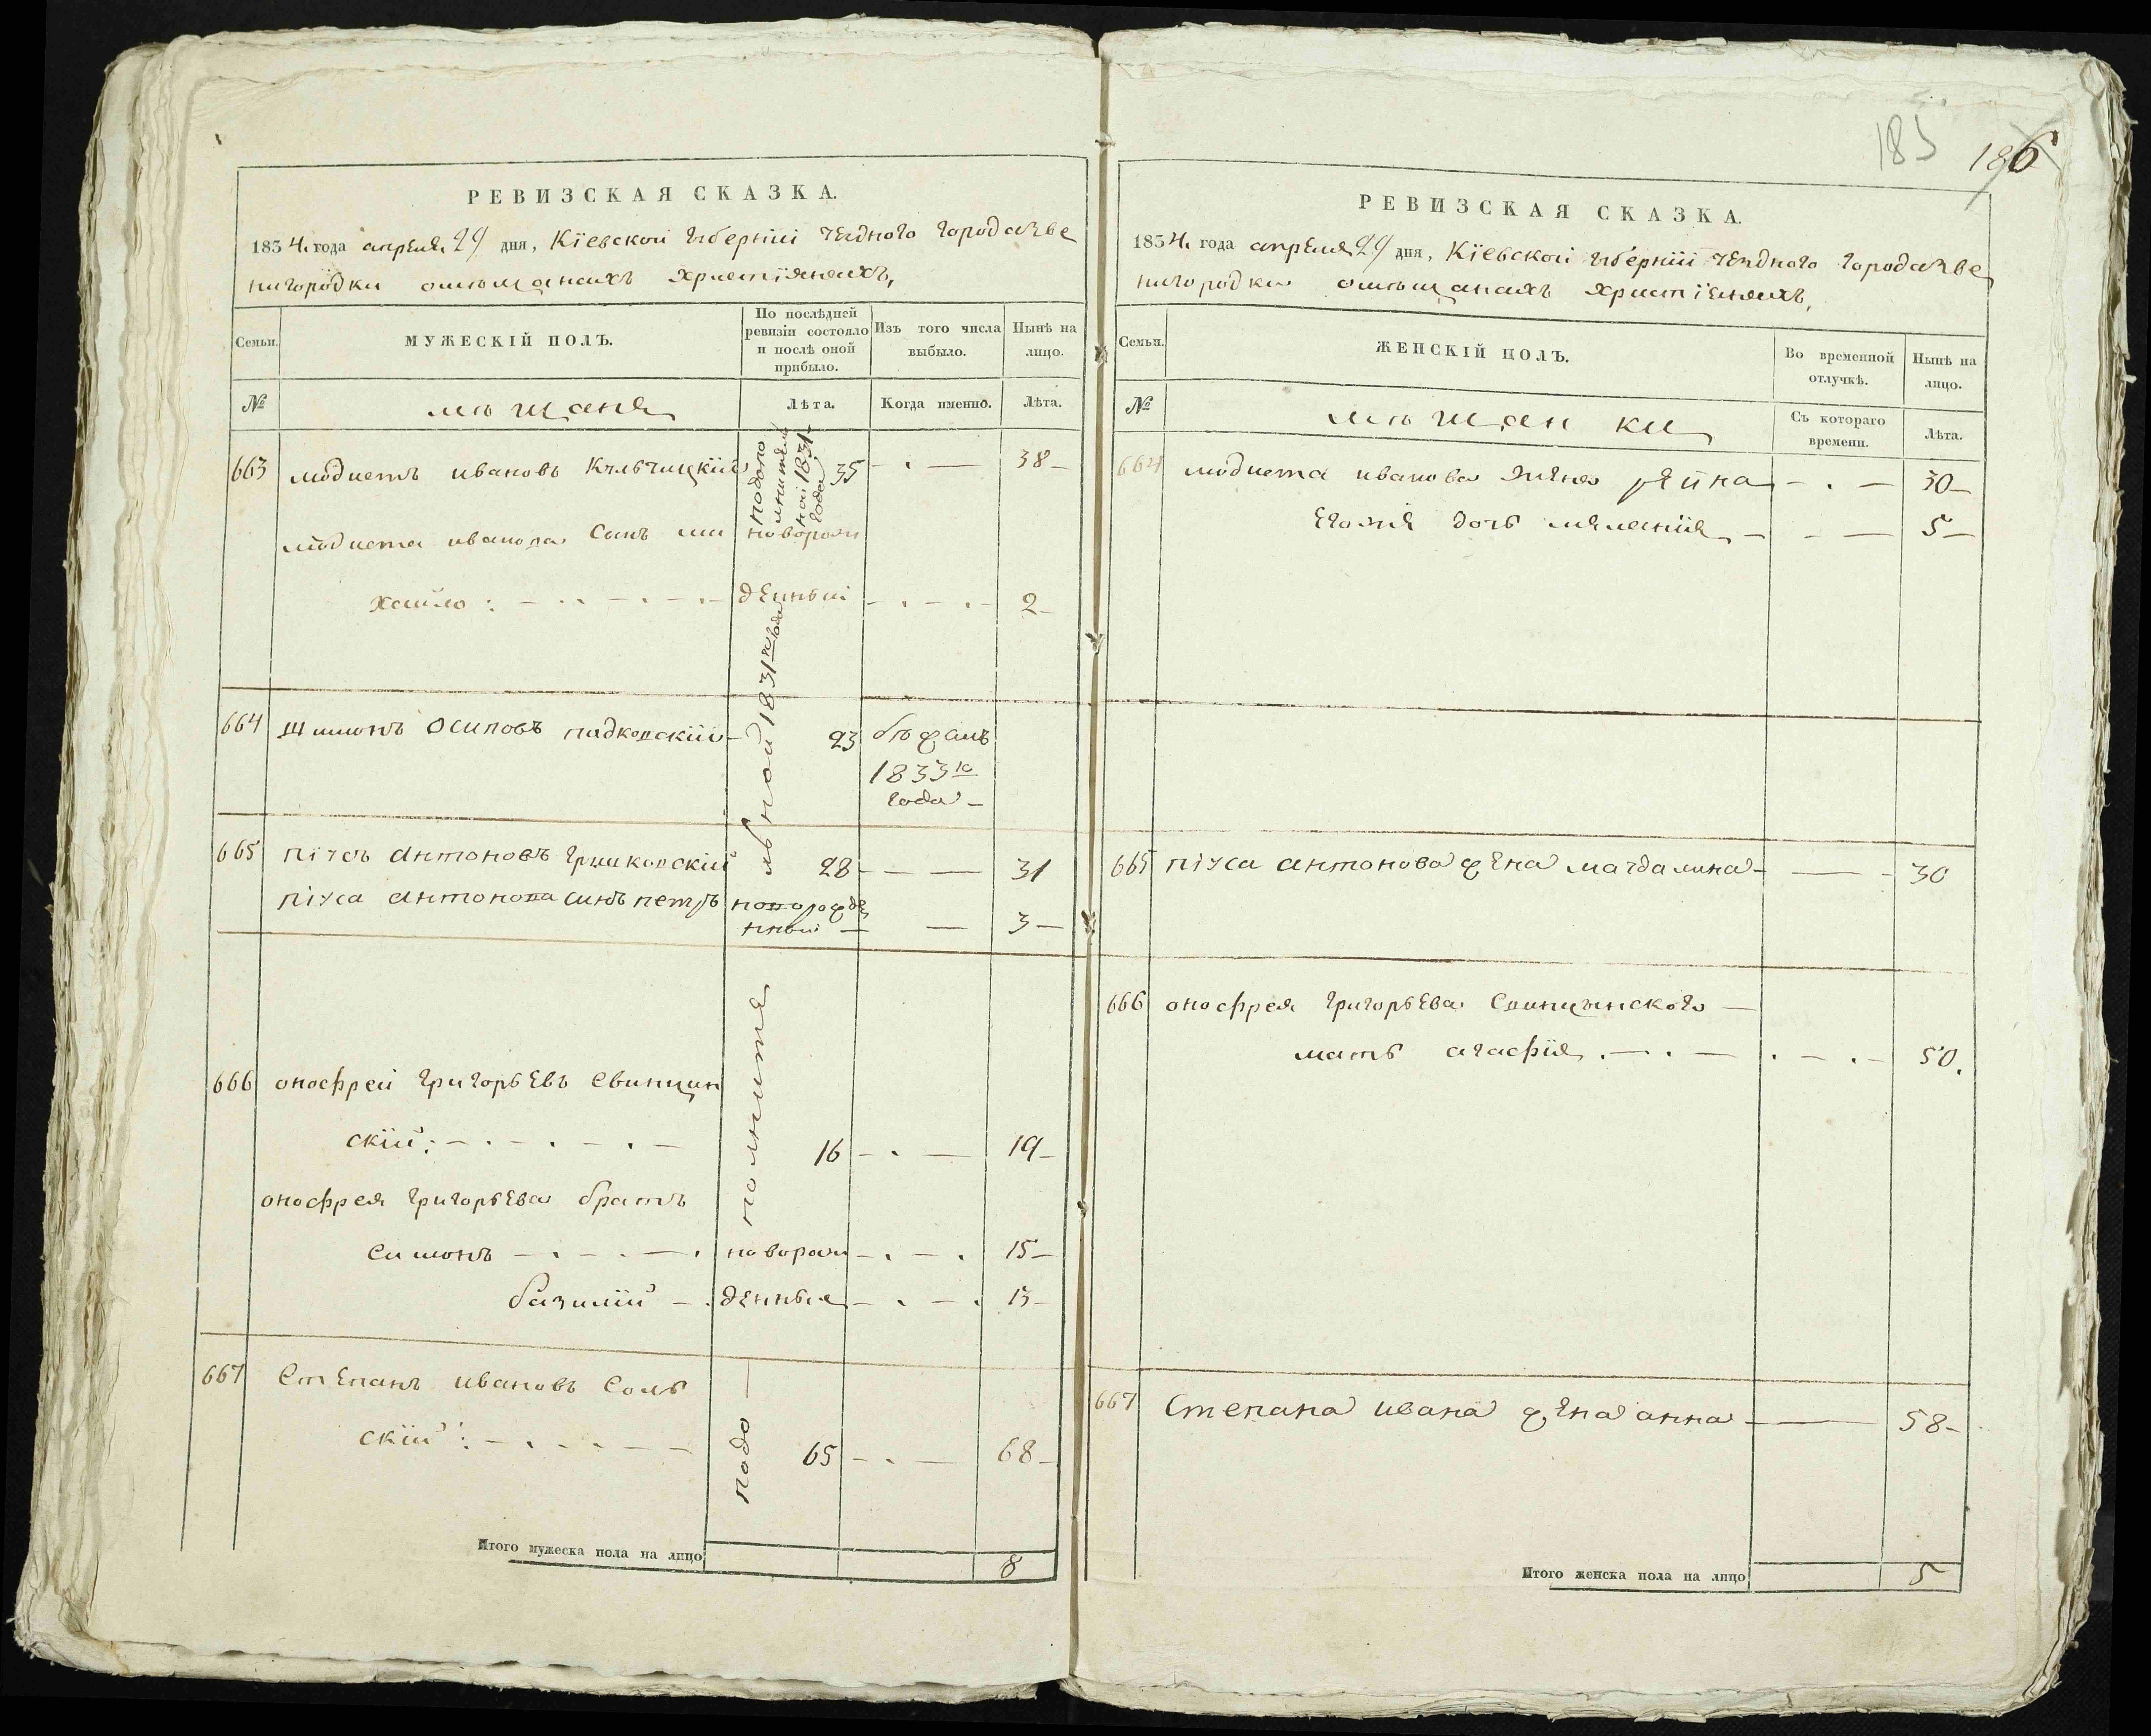 185 186
РЕВИЗСКАЯ СКАЗКА.
1834. года апреля 29 дня, Кіевской губерніи уездного города Зве
нигородки омѣщанахъ христіянахъ,
Семьи.
МУЖЕСКІЙ ПОЛЪ.
По послѣдней
ревизіи состояло
и послѣ оной
прибыло.
Изъ того числа
выбыло.
Нынѣ на
лицо.
№
мѣщане
Лѣта.
Когда именно.
Лѣта.
663 модестъ ивановъ Кульчицкій 35 — . — 38 —
подопо
лнитель
ной 1831
года
модеста иванова сынъ ми новорож
хайло : — . . — . — . — денный — . — . — 2 —
664 Шимонъ Осиповъ надковскій — 23 бѣжалъ
1833 го
года —
665 пiусъ Антоновъ Гришковскій 28 — — — 31
пiуса Антонова синъ петръ новорожде
нный — — 3 —
666 онофрей григорьевъ свинцин
скій : — . — . — . — 16 — . — 19 —
онофрея григорьева братъ
симонъ — . — . — . новорож — . — . 15 —
базилій — . денные — . — . 13 —
667 Степанъ ивановъ Соль
скій : — . — . — — 65 — . — 68 —
подо — полните льной 1831 года
Итого мужеска пола на лицо 8
РЕВИЗСКАЯ СКАЗКА.
1834. года апреля 29 дня, Кіевской губерніи уездного города Зве
нигородки омѣщанахъ христіянахъ,
Семьи.
ЖЕНСКІЙ ПОЛЪ.
Во временной
отлучкѣ.
Нынѣ на
лицо.
№
мѣщан ки
Съ котораго
времени.
Лѣта.
664 модеста иванова жена — . — 30 —
Его же дочь меланія — — — 5 —
665 пiуса антонова жена магдалина — — — 30
666 онофрея григорьева Свинцинского —
мать агафія . — . — . — . — 50.
667 Степана ивана жена анна — — 58 —
Итого женска пола на лицо 5